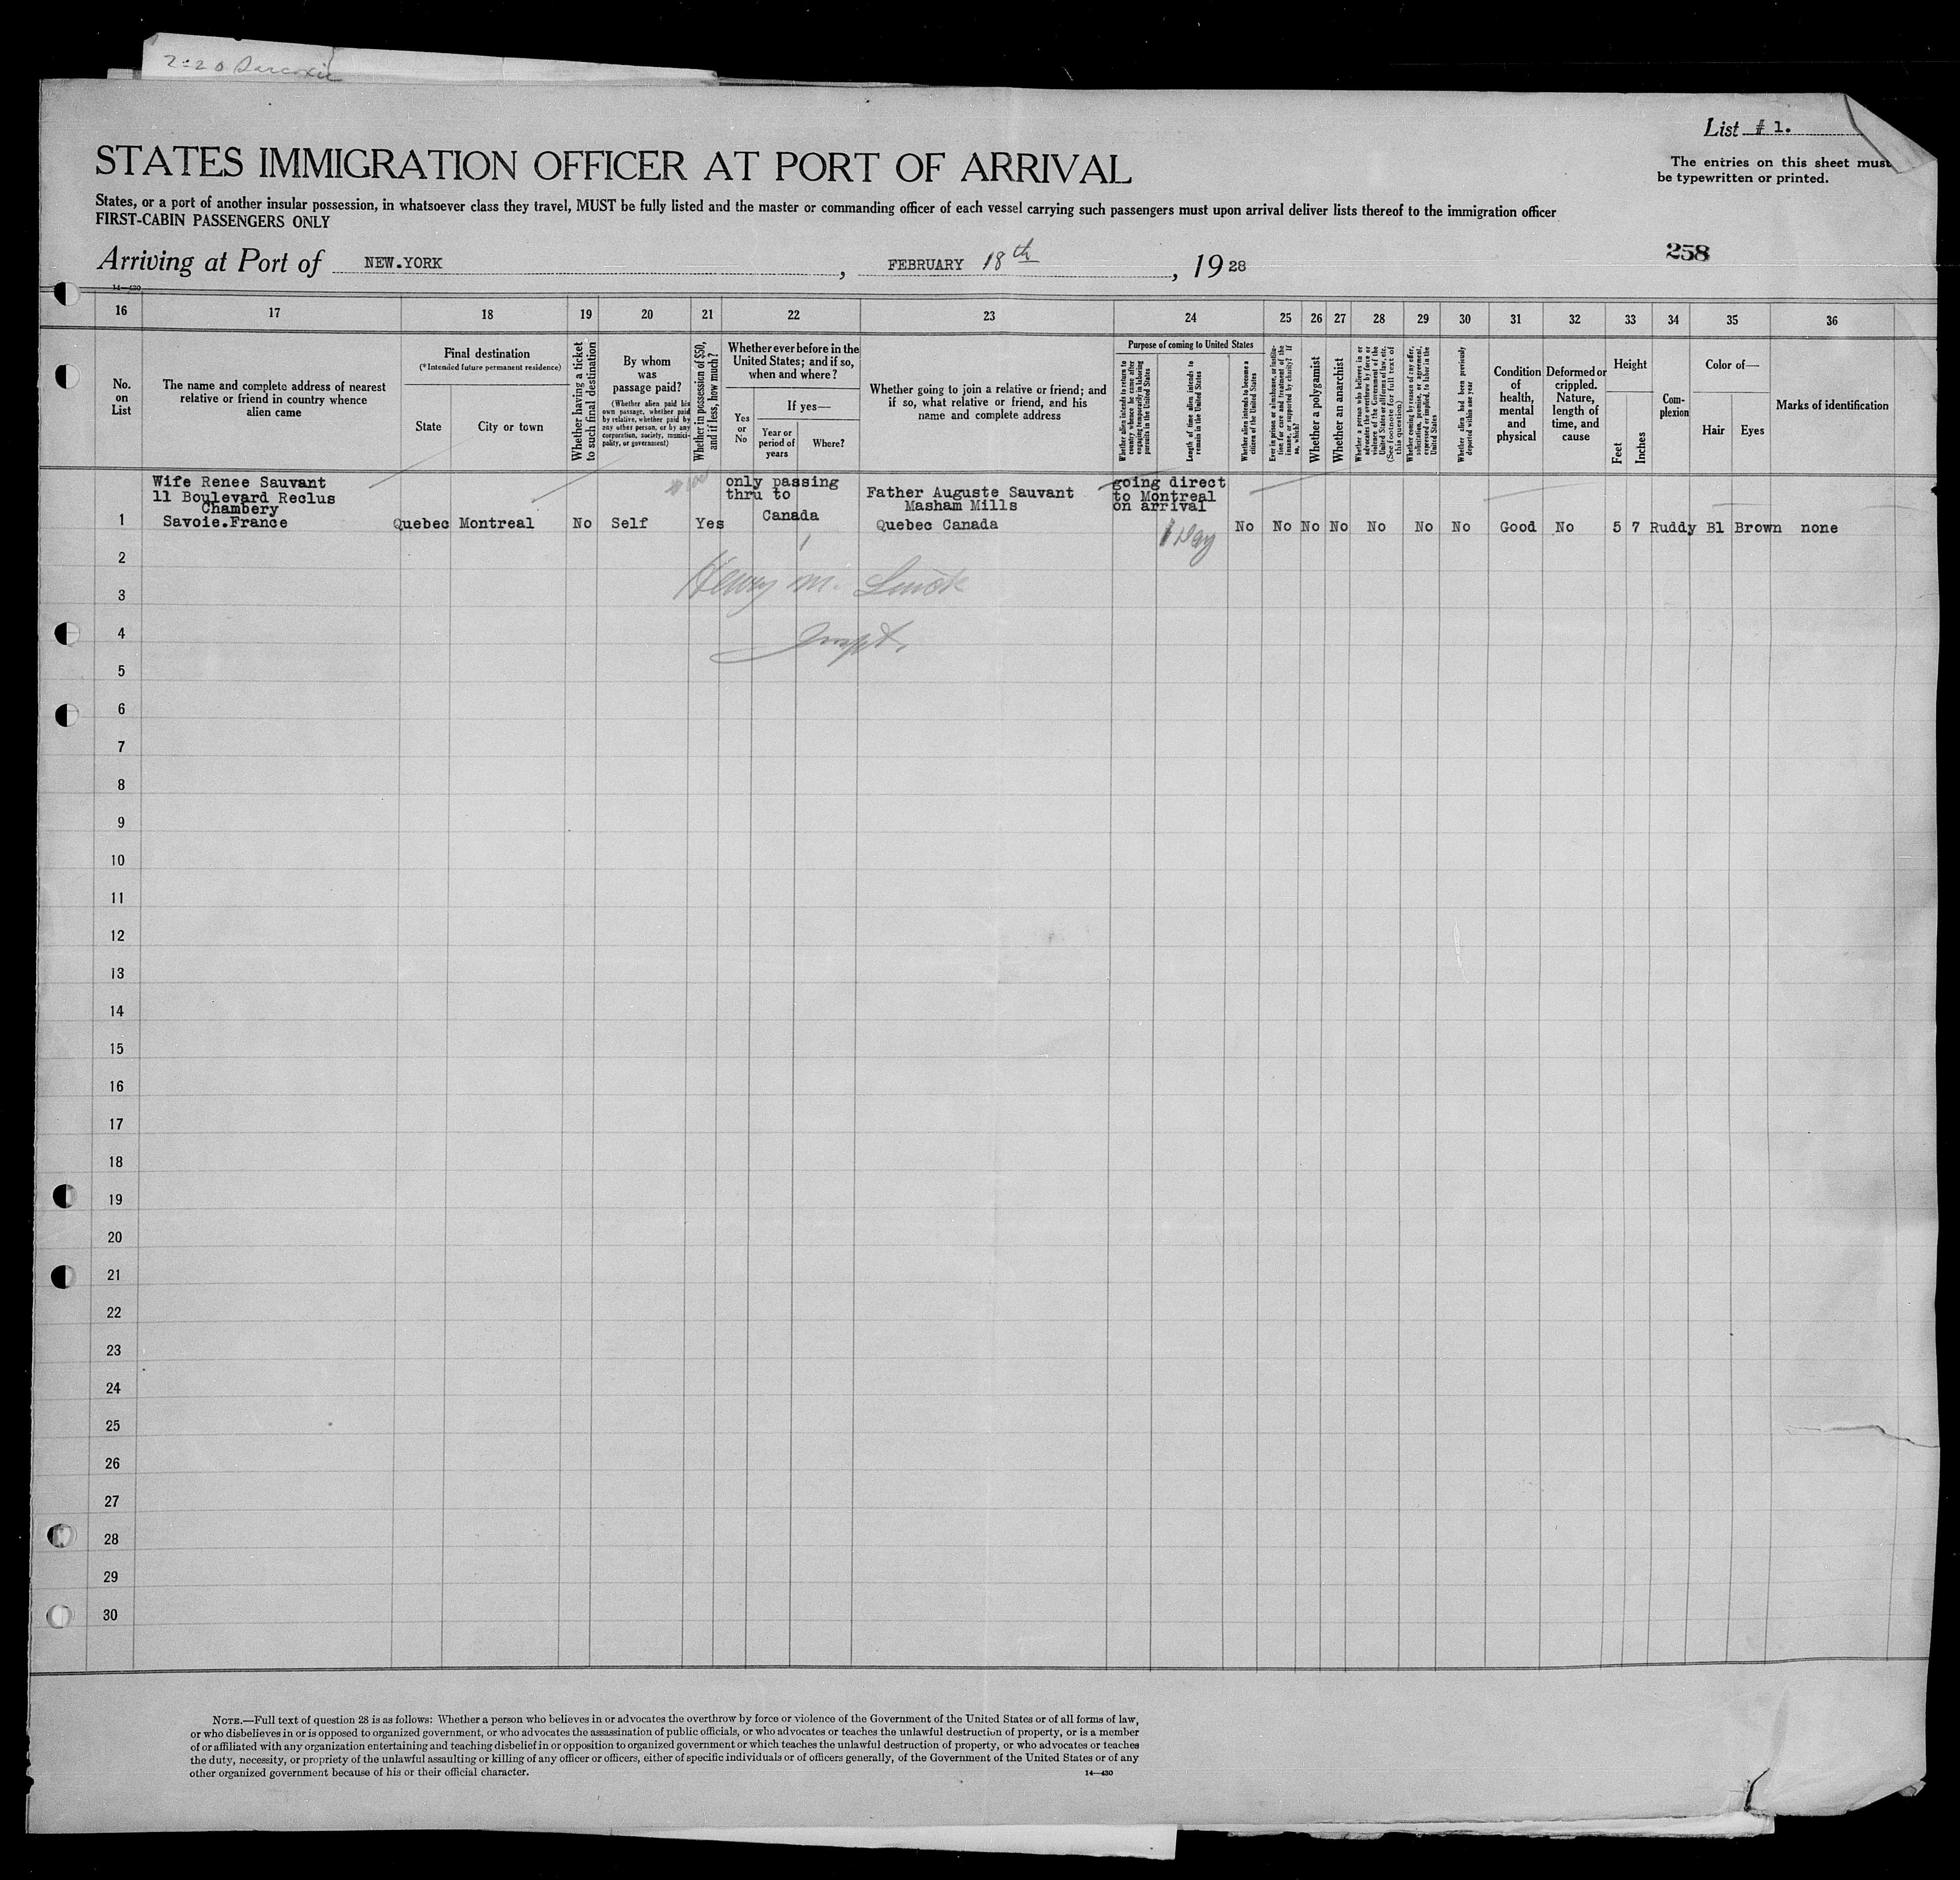 2-20 Sarcoxie
List # 1.
STATES IMMIGRATION OFFICER AT PORT OF ARRIVAL
The entries on this sheet must
be typewritten or printed.
States, or a port of another insular possession, in whatsoever class they travel, MUST be fully listed and the master or commanding officer of each vessel carrying such passengers must upon arrival deliver lists thereof to the immigration officer
FIRST-CABIN PASSENGERS ONLY
Arriving at Port of NEW.YORK, FEBRUARY 18th, 1928
258
14—430
16 17 18 19 20 21 22 23 24 25 26 27 28 29 30 31 32 33 34 35 36
No.
on
List
The name and complete address of nearest
relative or friend in country whence
alien came
Final destination
(* Intended future permanent residence)
State
City or town
Whether having a ticket
to such final destination
By whom
was
passage paid?
(Whether alien paid his
own passage, whether paid
by relative, whether paid by
any other person, or by any
corporation, society, munici-
pality, or government)
Whether in possession of $50,
and if less, how much?
Whether ever before in the
United States; and if so,
when and where?
Yes
or
No
If yes—
Year or
period of
years
Where?
Whether going to join a relative or friend; and
if so, what relative or friend, and his
name and complete address
Purpose of coming to United States
Whether alien intends to return to
country whence he came after
engaging temporarily in laboring
pursuits in the United States
Length of time alien intends to
remain in the United States
Whether alien intends to become a
citizen of the United States
Ever in prison or almshouse, or institu-
tion for care and treatment of the
insane, or supported by charity? If
so, which?
Whether a polygamist
Whether an anarchist
Whether a person who believes in or
advocates the overthrow by force or
violence of the Government of the
United States or all forms of law, etc.
(See footnote for full text of
this question)
Whether coming by reason of any offer,
solicitation, promise, or agreement,
expressed or implied, to labor in the
United States
Whether alien had been previously
deported within one year
Condition
of
health,
mental
and
physical
Deformed or
crippled.
Nature,
length of
time, and
cause
Height
Feet
Inches
Com-
plexion
Color of—
Hair
Eyes
Marks of identification
Wife Renee Sauvant
11 Boulevard Reclus
Chambery
1 Savoie.France Quebec Montreal No Self Yes
only passing
thru to
Canada
Father Auguste Sauvant
Masham Mills
Quebec Canada
going direct
to Montreal
on arrival
1 Day
No No No No No No No Good No 5 7 Ruddy Bl Brown none
2
Henry M.
3
4
Inspt.
5
6
7
8
9
10
11
12
13
14
15
16
17
18
19
20
21
22
23
24
25
26
27
28
29
30
NOTE.—Full text of question 28 is as follows: Whether a person who believes in or advocates the overthrow by force or violence of the Government of the United States or of all forms of law,
or who disbelieves in or is opposed to organized government, or who advocates the assassination of public officials, or who advocates or teaches the unlawful destruction of property, or is a member
of or affiliated with any organization entertaining and teaching disbelief in or opposition to organized government or which teaches the unlawful destruction of property, or who advocates or teaches
the duty, necessity, or propriety of the unlawful assaulting or killing of any officer or officers, either of specific individuals or of officers generally, of the Government of the United States or of any
other organized government because of his or their official character.
14—430